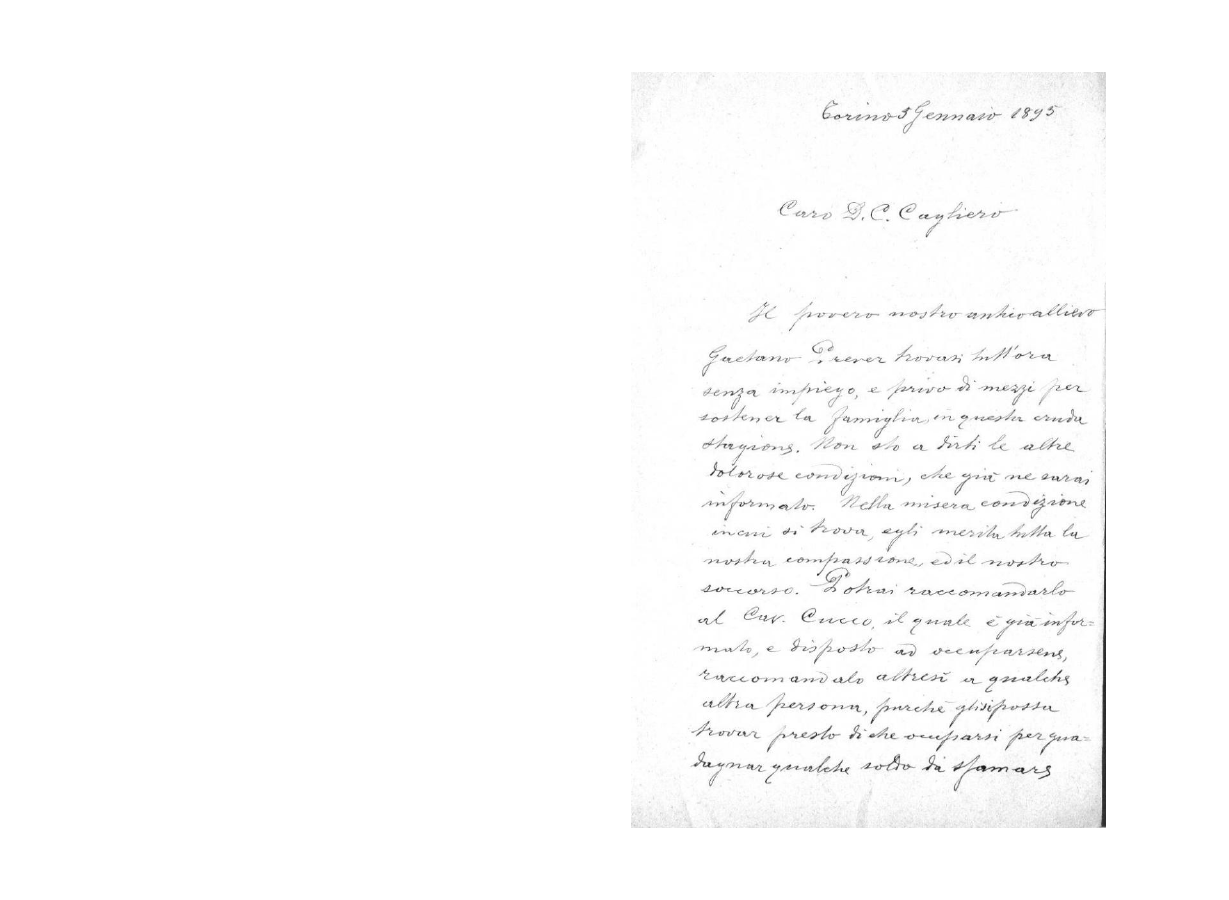 Torino 5 Gennaio 1895
Caro D. C. Cagliero
Il povero nostro antico allievo
Gaetano Prever trovasi tutt'ora
senza impiego, e privo di mezzi per
sostener la famiglia, in questa cruda
stagione. Non sto a dirti le altre
dolorose condizioni, che già ne sarai
informato. Nella misera condizione
in cui si trova, egli merita tutta la
nostra compassione, ed il nostro
soccorso. Potrai raccomandarlo
al Cav. Cucco, il quale è già infor=
mato, e disposto ad occuparsene,
raccomandalo altresì a qualche
altra persona, purchè gli si possa
trovar presto di che ocuparsi per gua=
dagnar qualche soldo da sfamare